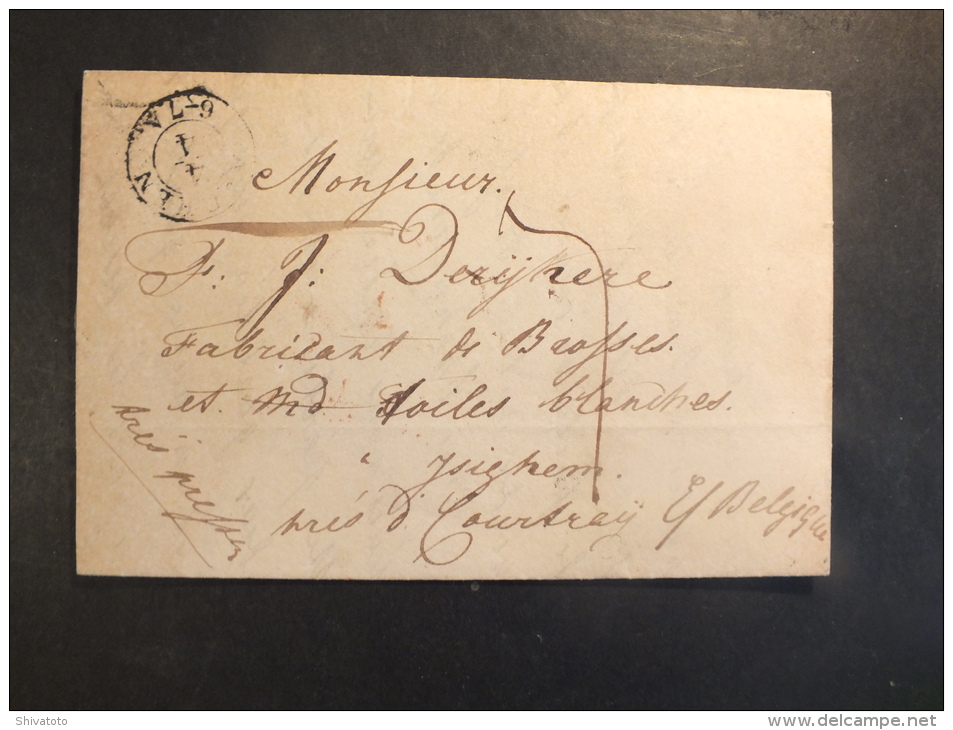 Monsieur.
F. J. Derijkere
Fabricant de Brosses.
et md toiles blanches.
à Ysighem.
près d Courtray E/ Belgique
très pressée
6-7A
Shivatoto
www.delcampe.net